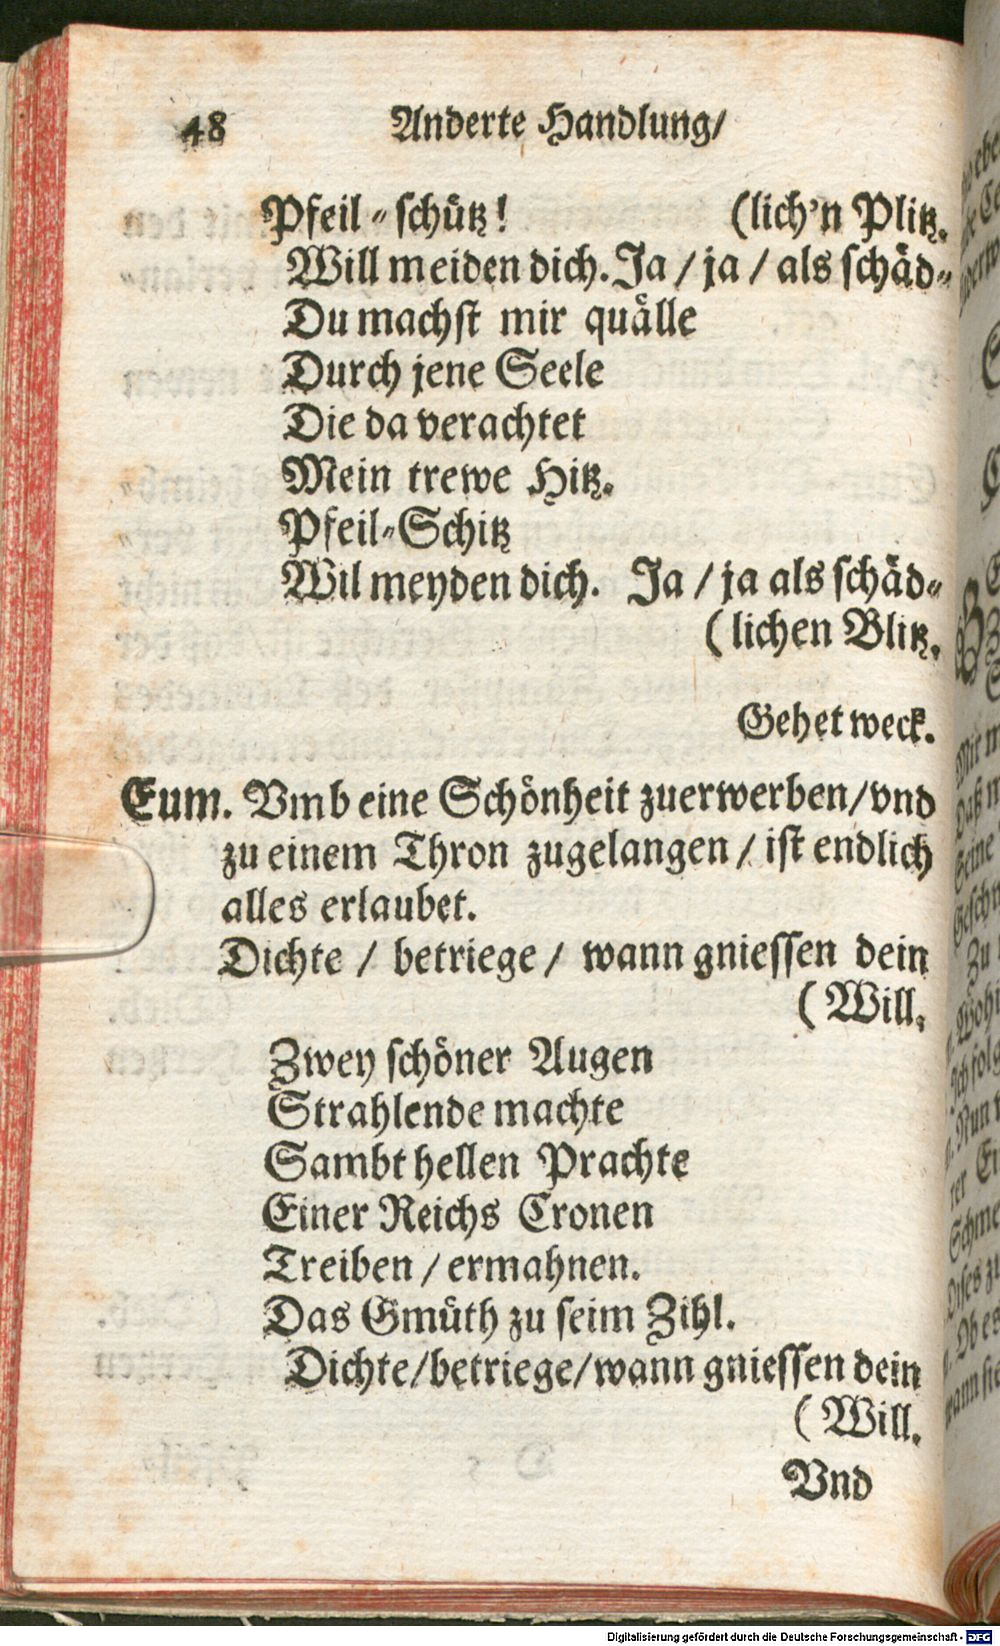 48 Anderte Handlung/
Pfeil-schütz! (lich'n Plitz.
Will meiden dich. Ja / ja / als schäd-
Du machst mir quälle
Durch jene Seele
Die da verachtet
Mein trewe Hitz.
Pfeil-Schitz
Wil meyden dich. Ja / ja als schäd-
(lichen Blitz.
Gehet weck.
Eum. Vmb eine Schönheit zuerwerben/vnd
zu einem Thron zugelangen / ist endlich
alles erlaubet.
Dichte / betriege / wann gniessen dein
(Will.
Zwey schöner Augen
Strahlende machte
Sambt hellen Prachte
Einer Reichs Cronen
Treiben / ermahnen.
Das Gmüth zu seim Zihl.
Dichte/betriege/wann gniessen dein
(Will.
Vnd
Digitalisierung gefördert durch die Deutsche Forschungsgemeinschaft - DFG